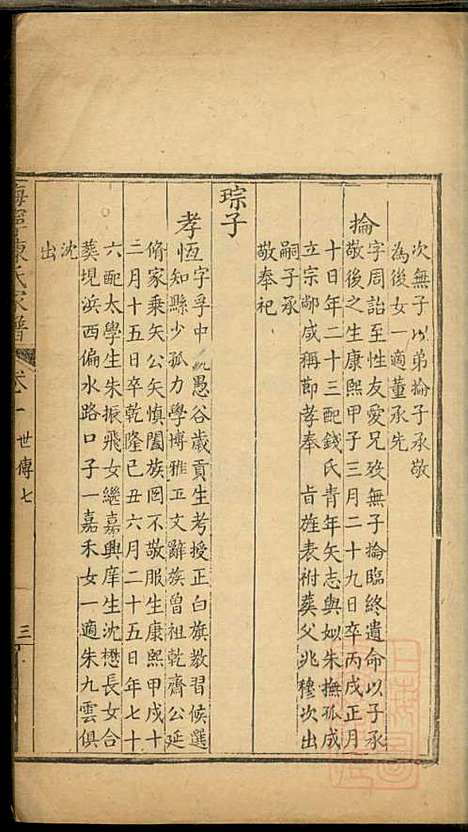 次無子以弟掄子承敬
為後女一適董承先
掄
字周詒至性友愛兄歿無子掄臨終遺命以子承
敬後之生康熙甲子三月二十九日卒丙戌正月
十日年二十三配錢氏青年矢志與姒朱撫孤成
立宗鄰咸稱節孝奉 旨旌表祔葬父兆穆次出
嗣子承
敬奉祀
琮子
孝恆
字孚中 愚谷歲貢生考授正白旗教習候選
知縣少孤力學博雅工文辭族曾祖乾齋公延
脩家乘矢公矢慎闔族罔不敬服生康熙甲戌十
二月十五日卒乾隆己丑六月二十五日年七十
六配太學生朱振飛女繼嘉興庠生沈懋長女合
葬現浜西偏水路口子一嘉禾女一適朱九雲俱
沈
出
海寧陳氏家譜 卷十一 世傳七 三